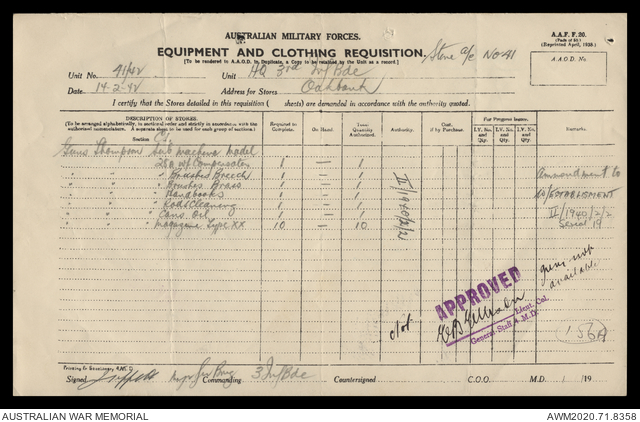 AUSTRALIAN MILITARY FORCES.
A.A.F. F.20.
(Pads of 50.)
(Reprinted April, 1938)
EQUIPMENT AND CLOTHING REQUISITION.
Store a/c No 41
[To be rendered to A.A.O.D. in Duplicate, a Copy to be retained by the Unit as a record.]
A.A.O.D. No.
Unit No. 41/42 Unit HQ 3rd Inf Bde
Date 14-2-42 Address for Stores Oakbank
I certify that the Stores detailed in this requisition ( sheets) are demanded in accordance with the authority quoted.
DESCRIPTION OF STORES.
(To be arranged alphabetically, in sectional order and strictly in accordance with the authorised nomenclature. A separate sheet to be used for each group of sections.)
Section C1
Required to Complete. On Hand. Total Quantity Authorized. Authority. Cost, if by Purchase. For Progress Issues. Remarks.
I.V. No. and Qty. I.V. No. and Qty. I.V. No. and Qty.
Guns Thompson Sub machine model
28a wf Compensator 1 — 1
" " " Brushes Breech 1 — 1
" " " Brushes Brass 1 — 1
" " " Handbooks 1 — 1
" " " Rods Cleaning 1 — 1
" " " Cans Oil 1 — 1
" " " magazine type XX 10 — 10
II/1940/2/2
Ammendment to
ESTABLISHMENT
II/1940/2/2
Serial 19
guns not
available
APPROVED
Lieut. Col.
General Staff 4 M.D.
156A
Signed Major Commanding 3 Inf Bde Countersigned C.O.O. M.D. / /19
AUSTRALIAN WAR MEMORIAL
AWM2020.71.8358